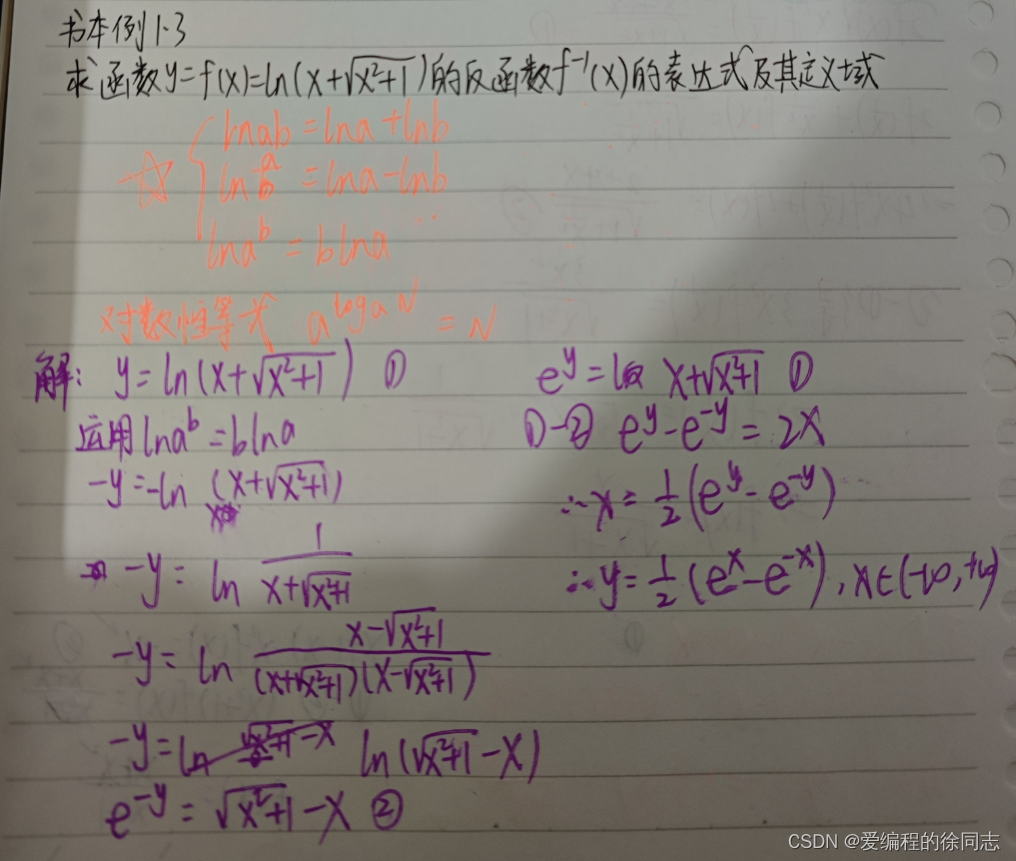 书本例1·3
求函数y=f(x)=ln(x+√(x²+1))的反函数f⁻¹(x)的表达式及其定义域
lnab=lna+lnb
ln a/b=lna-lnb
lnaᵇ=blna
对数性等式 a^(logaN)=N
解: y=ln(x+√(x²+1)) ①
运用lnaᵇ=blna
-y=-ln(x+√(x²+1))
-y=ln 1/(x+√(x²+1))
-y=ln (x-√(x²+1))/((x+√(x²+1))(x-√(x²+1)))
-y=ln(√(x²+1)-x)
e^(-y)=√(x²+1)-x ②
e^y=x+√(x²+1) ①
①-② e^y-e^(-y)=2x
∴x=1/2(e^y-e^(-y))
∴y=1/2(e^x-e^(-x)),x∈(-∞,+∞)
CSDN @爱编程的徐同志